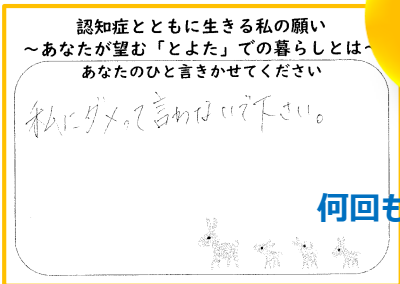 認知症とともに生きる私の願い
～あなたが望む「とよた」での暮らしとは～
あなたのひと言きかせてください
私にダメって言わないで下さい。
何回も